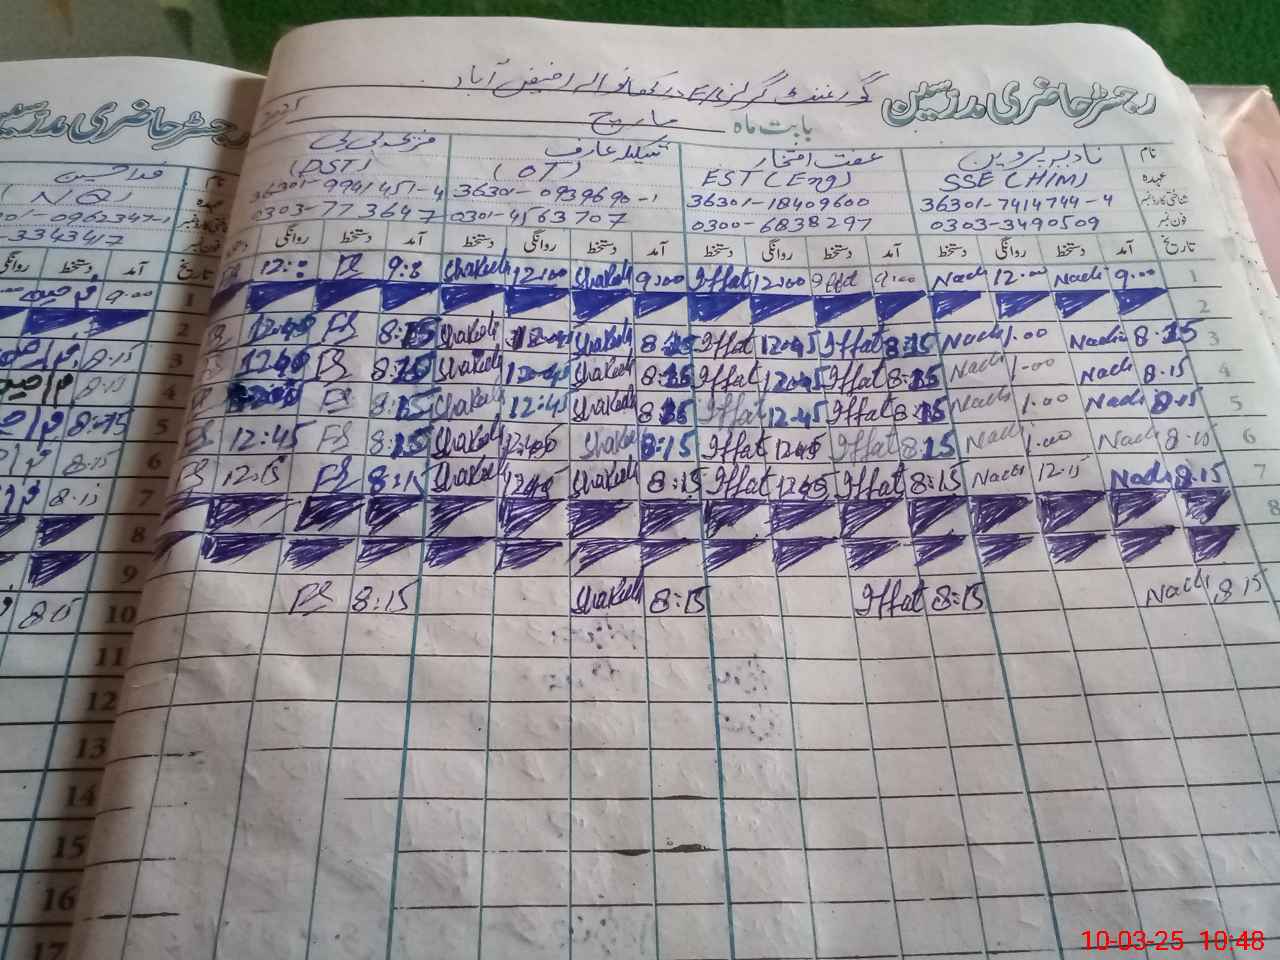 رجسٹر حاضری مدرسین
گورنمنٹ گرلز E/S
بابت ماہ مارچ
نام نادیہ پروین عفت افتخار شکیلہ عارف
عہدہ SSE (H/M) EST (Eng) (OT) (DST)
36301-7414744-4 36301-18409600 36301-0939690-1 36301-9941451-4
فون نمبر 0303-3490509 0300-6838297 0301-4563707 0303-773647
تاریخ آمد دستخط روانگی دستخط آمد دستخط روانگی دستخط آمد دستخط روانگی دستخط آمد دستخط روانگی
1 9:00 Nadi 12:00 Nadi 9:00 Iffat 12:00 Iffat 9:00 Shakeela 12:00 Shakeela 9:0 FS 12:0
2
3 8:15 Nadi 1:00 Nadi 8:15 Iffat 12:45 Iffat 8:15 Shakeela Shakeela 8:15 FS 12:45
4 8:15 Nadi 1:00 Nadi 8:15 Iffat 12:45 Iffat 8:15 Shakeela 12:45 Shakeela 8:15 FS 12:45
5 8:15 Nadi 1:00 Nadi 8:15 Iffat 12:45 Iffat 8:15 Shakeela 12:45 Shakeela 8:15 FS
6 8:15 Nadi 1:00 Nadi 8:15 Iffat 12:45 Iffat 8:15 Shakeela 12:45 Shakeela 8:15 FS 12:45 FS
7 8:15 Nadi 12:15 Nadi 8:15 Iffat Iffat 8:15 Shakeela Shakeela 8:15 FS 12:15 FS
8
8:15 Nadi 8:15 Iffat 8:15 Shakeela 8:15 FS
رجسٹر حاضری مدرسین
نام فدا حسین
عہدہ (NQ)
01-0962347-1
فون نمبر -3343417
تاریخ آمد دستخط روانگی
1 9:00
2
3 8:15
4 8:15
5 8:15
6 8:15
7 8:15
8
9
10 8:15
11
12
13
14
15
16
17
10-03-25 10:48